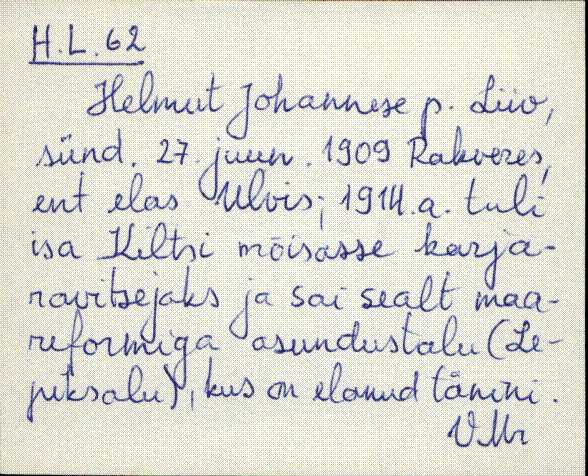 H.L. 62
Helmut Johannese p. Liiv,
sünd. 27. juun. 1909 Rakveres,
ent elas Ulvis; 1914.a. tuli
isa Kiltsi mõisasse karja-
ravitsejaks ja sai sealt maa-
reformiga asundustalu (Le-
piksalu), kus on elanud tänini.
VMr